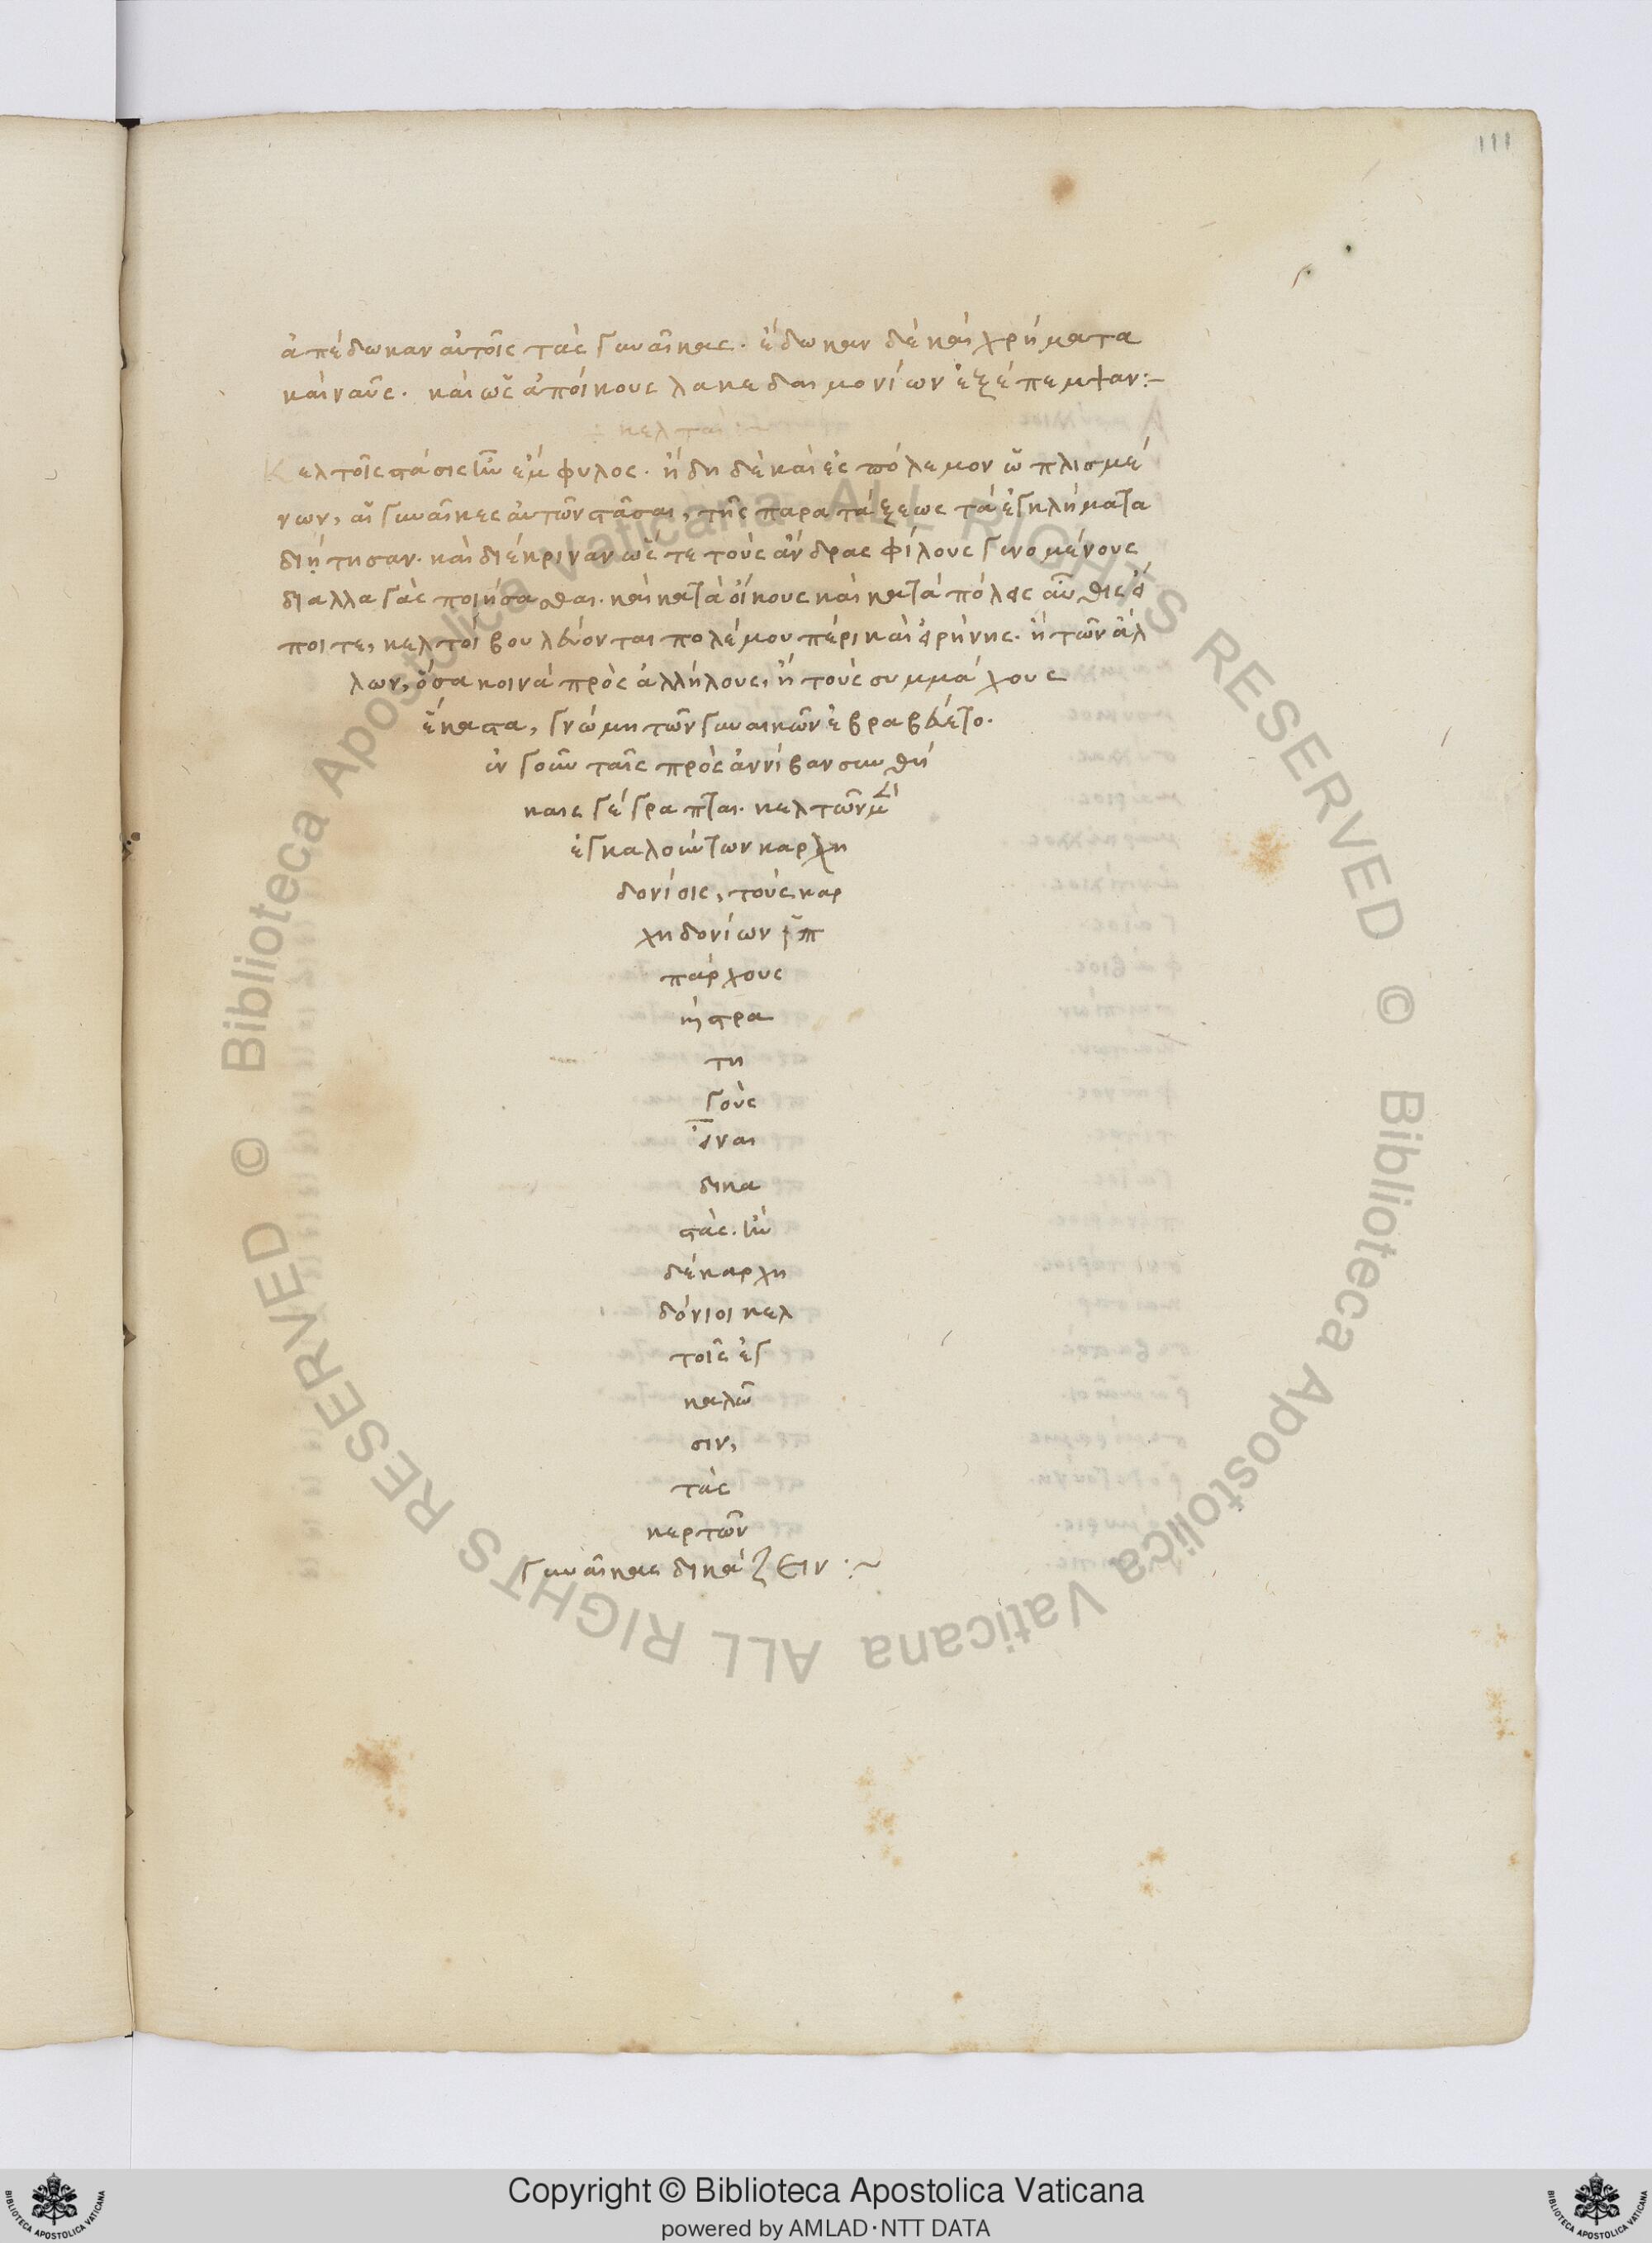 111
ἀπέδωκαν αὐτοῖς τὰς γυναῖκας. ἔδωκαν δὲ καὶ χρήματα
καὶ ναῦς. καὶ ὡς ἀποίκους λακεδαιμονίων ἐξέπεμψαν:–
κελταί
Κελτοῖς στάσις ἦν ἐμφυλος. ἤδη δὲ καὶ ἐς πόλεμον ὡπλισμέ
νων, αἱ γυναῖκες αὐτῶν στᾶσαι, τῆς παρατάξεως τὰ ἐγκλήματα
διήτησαν. καὶ διέκριναν ὥστε τοὺς ἄνδρας φίλους γινομένους
διαλλαγὰς ποιήσασθαι. καὶ κατὰ οἴκους καὶ κατὰ πόλεις αὖθις εἴ
ποιτε, κελτοὶ βουλεύονται πολέμου πέρι καὶ εἰρήνης. ἢ τῶν ἀλ
λων, ὅσα κοινὰ πρὸς ἀλλήλους, ἢ τοὺς συμμάχους
ἕκαστα, γνώμη τῶν γυναικῶν ἐβραβεύετο.
ἐν γοῦν ταῖς πρὸς ἀννίβαν συνθή
καις γέγραπται. κελτῶν μὲν
ἐγκαλούντων καρχη
δονίοις, τοὺς καρ
χηδονίων ἱπ
πάρχους
ἢ στρα
τη
γοὺς
εἶναι
δικα
στάς. ἢν
δὲ καρχη
δόνιοι κελ
τοῖς ἐγ
καλῶ
σιν,
τὰς
κερτῶν
γυναῖκας δικάζειν :~
© Biblioteca Apostolica Vaticana ALL RIGHTS RESERVED
© Biblioteca Apostolica Vaticana ALL RIGHTS RESERVED
Copyright © Biblioteca Apostolica Vaticana
powered by AMLAD·NTT DATA
BIBLIOTECA APOSTOLICA VATICANA
BIBLIOTECA APOSTOLICA VATICANA